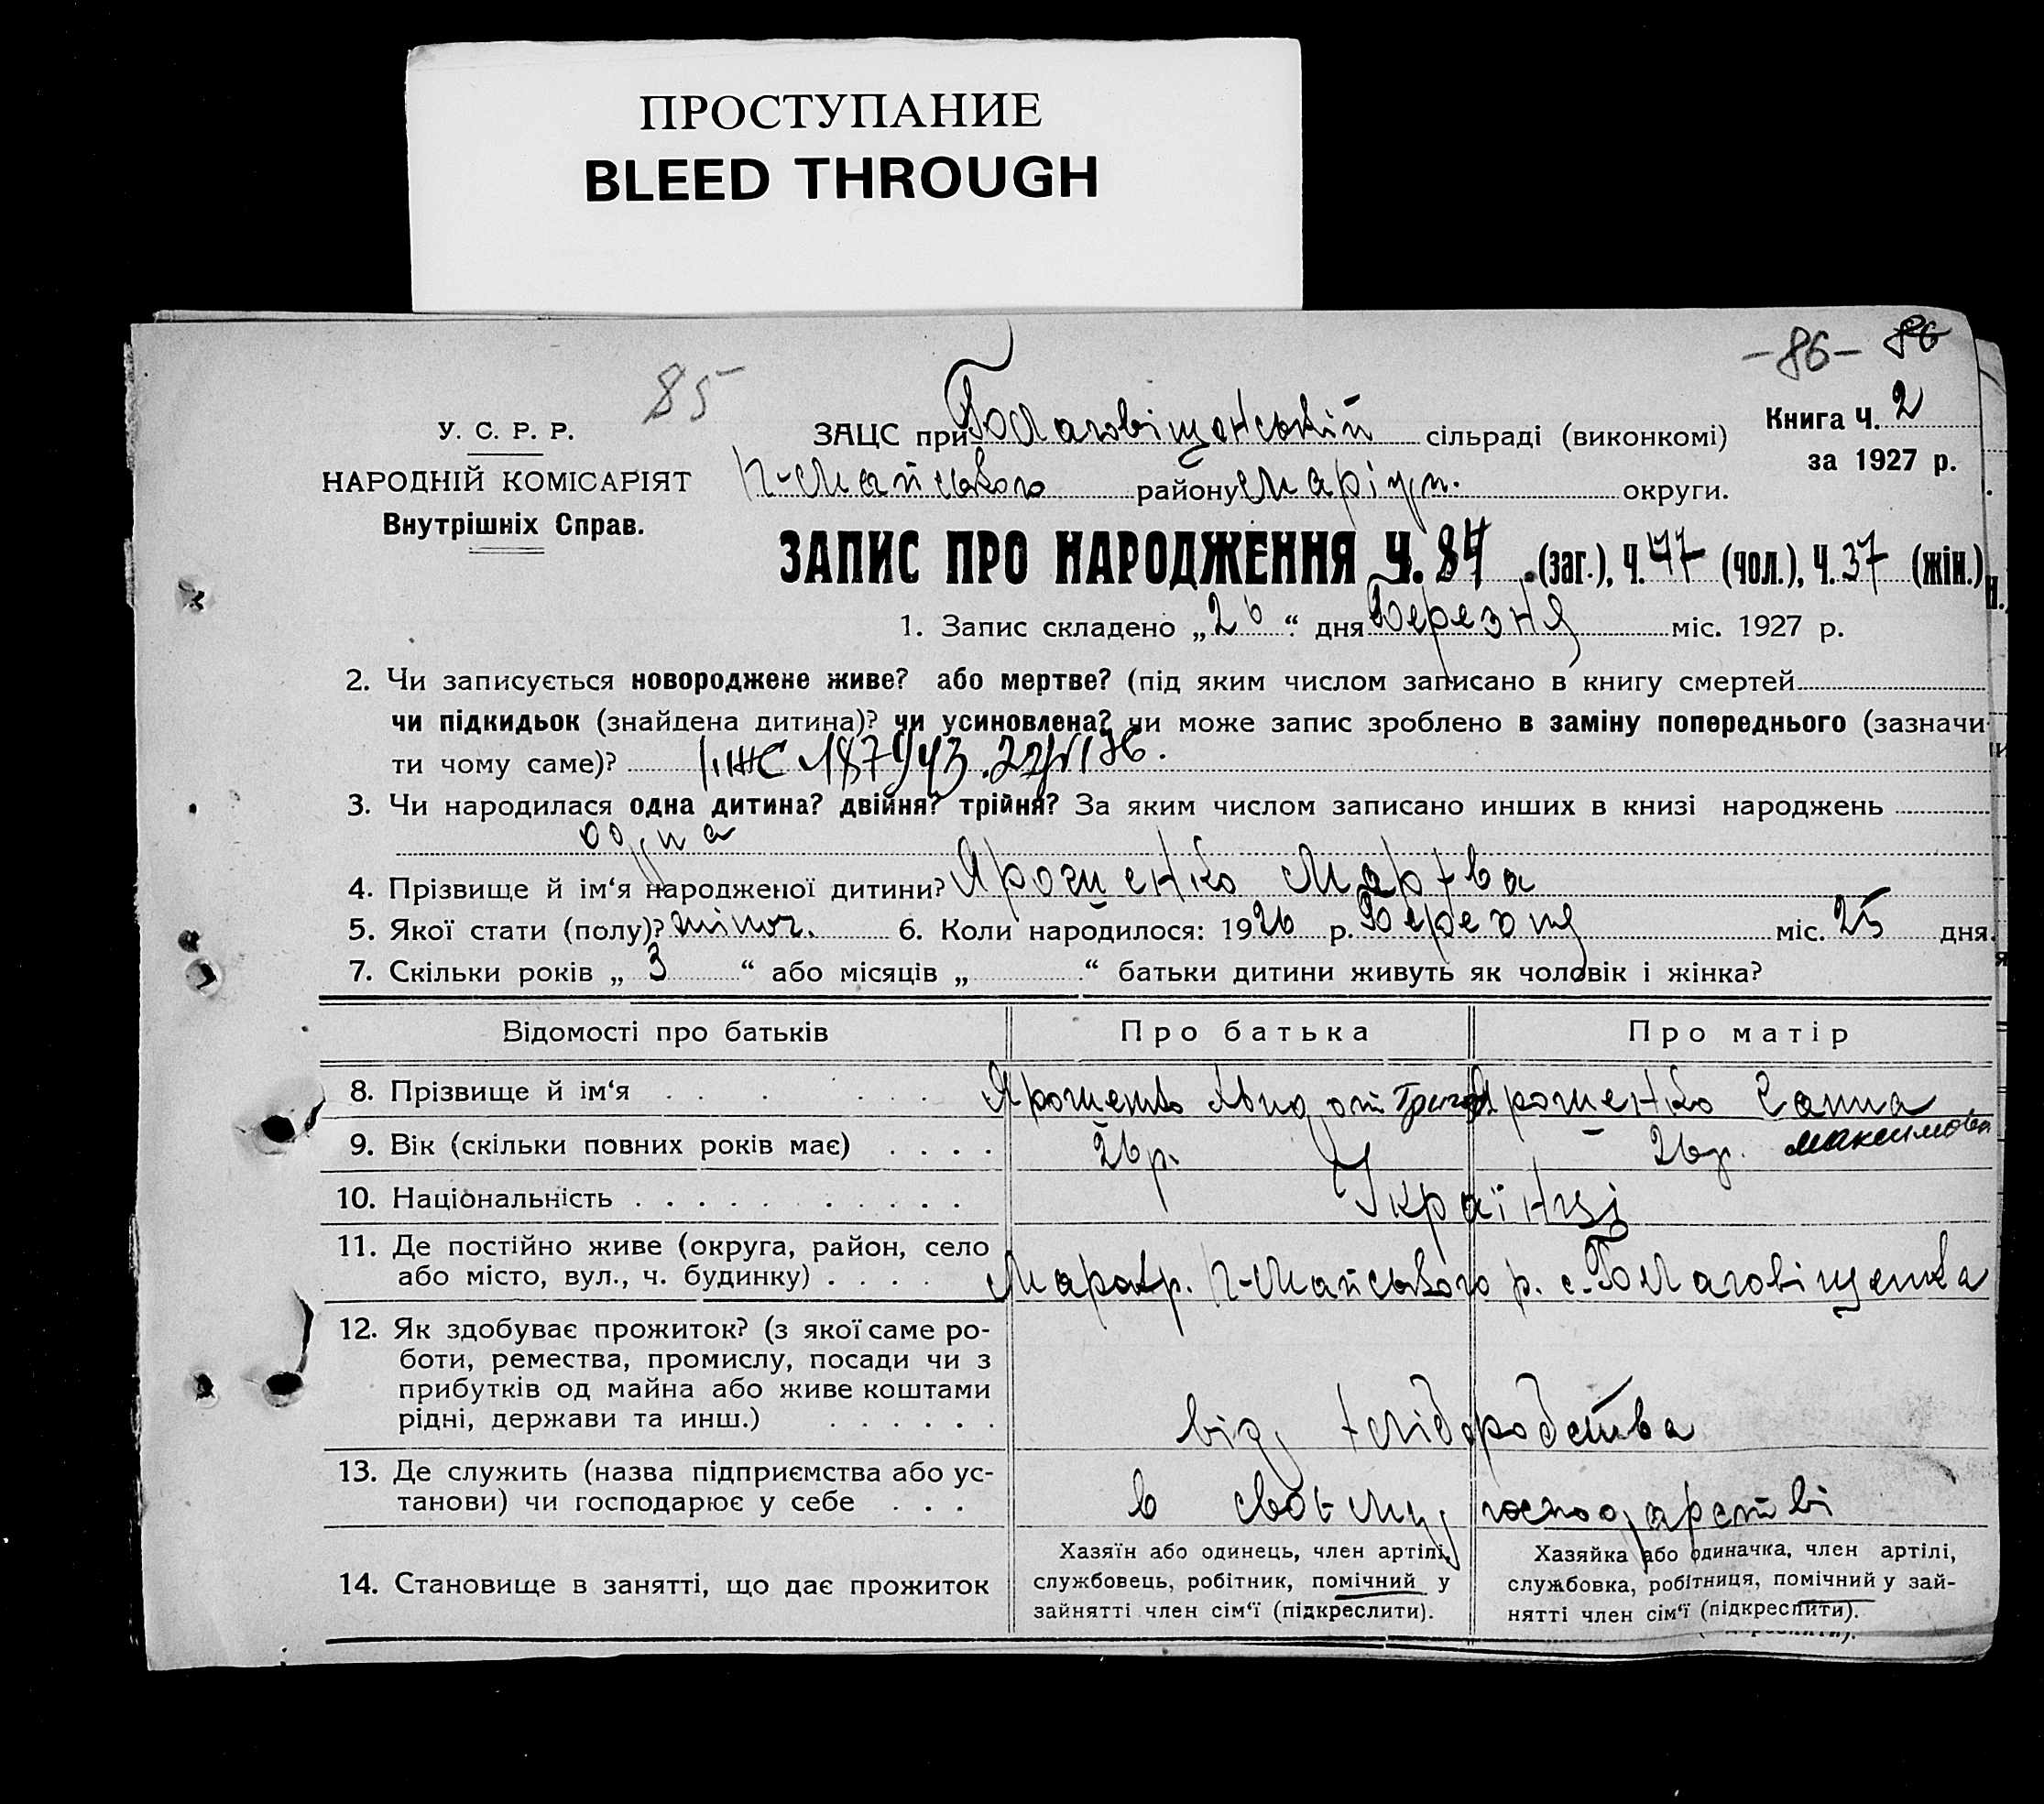 ПРОСТУПАНИЕ
BLEED THROUGH
-86- 86
85
У. С. Р. Р.
НАРОДНІЙ КОМІСАРІЯТ
Внутрішніх Справ.
ЗАЦС при Благовіщенській сільраді (виконкомі)
Книга Ч. 2
за 1927 р.
П-Майського району Маріуп. округи.
ЗАПИС ПРО НАРОДЖЕННЯ Ч. 84 (заг.), Ч. 47 (чол.), Ч. 37 (жін.)
1. Запис складено „26“ дня Березня міс. 1927 р.
2. Чи записується новороджене живе? або мертве? (під яким числом записано в книгу смертей
чи підкидьок (знайдена дитина)? чи усиновлена? чи може запис зроблено в заміну попереднього (зазначи-
ти чому саме)?
3. Чи народилася одна дитина? двійня? трійня? За яким числом записано инших в книзі народжень
одна
4. Прізвище й ім‘я народженої дитини? Ярошенко
5. Якої стати (полу)? жіноч. 6. Коли народилося: 1926 р. Березня міс. 25 дня.
7. Скільки років „ 3 “ або місяців „ “ батьки дитини живуть як чоловік і жінка?
Відомості про батьків Про батька Про матір
8. Прізвище й ім‘я Ярошенко Ярошенко Ганна
9. Вік (скільки повних років має) 26 р. 26 р. Максимовна
10. Національність Українці
11. Де постійно живе (округа, район, село
або місто, вул., ч. будинку) П-Майського р. с. Благовіщенка
12. Як здобуває прожиток? (з якої саме ро-
боти, ремества, промислу, посади чи з
прибутків од майна або живе коштами
рідні, держави та инш.) від хліборобства
13. Де служить (назва підприємства або ус-
танови) чи господарює у себе в своєму господарстві
14. Становище в занятті, що дає прожиток
Хазяїн або одинець, член артілі,
службовець, робітник, помічний у
зайнятті член сім‘ї (підкреслити).
Хазяйка або одиначка, член артілі,
службовка, робітниця, помічний у зай-
нятті член сім‘ї (підкреслити).